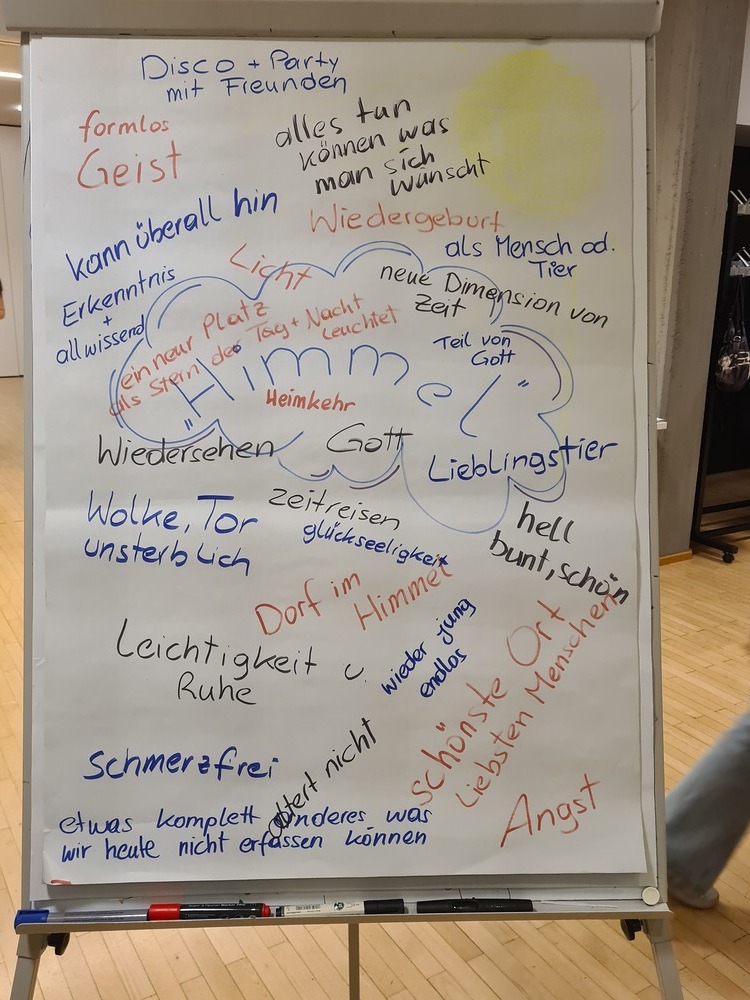 Disco + Party
mit Freunden
formlos
Geist
alles tun
können was
man sich
wünscht
kann überall hin
Wiedergeburt
als Mensch od.
Tier
Erkenntnis
+
allwissend
Licht
neue Dimension von
Zeit
ein neur Platz
als Stern der Tag + Nacht
leuchtet
Teil von
Gott
"Himmel"
Heimkehr
Wiedersehen
Gott
Lieblingstier
Wolke, Tor
unsterblich
zeitreisen
glückseeligkeit
hell
bunt, schön
Dorf im
Himmel
Leichtigkeit u.
Ruhe
wieder jung
endlos
schönste Ort
Liebsten Menschen
Schmerzfrei
nicht
Angst
etwas komplett anderes was
wir heute nicht erfassen können